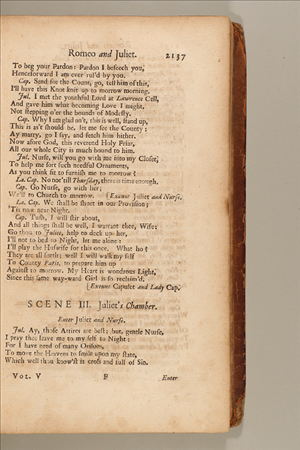 Romeo and Juliet. 2137
To beg your Pardon: Pardon I beseech you,
Henceforward I am ever rul'd by you.
Cap. Send for the Count, go, tell him of this,
I'll have this Knot knit up to morrow morning.
Jul. I met the youthful Lord at Lawrence Cell,
And gave him what becoming Love I might,
Not stepping o'er the bounds of Modesty.
Cap. Why I am glad on't, this is well, stand up,
This is as't should be, let me see the County:
Ay marry, go I say, and fetch him hither.
Now afore God, this reverend Holy Friar,
All our whole City is much bound to him.
Jul. Nurse, will you go with me into my Closet,
To help me sort such needful Ornaments,
As you think fit to furnish me to morrow?
La. Cap. No not 'till Thursday, there is time enough.
Cap. Go Nurse, go with her;
We'll to Church to morrow. [Exeunt Juliet and Nurse.
La. Cap. We shall be short in our Provision;
'Tis now near Night.
Cap. Tush, I will stir about,
And all things shall be well, I warrant thee, Wife:
Go thou to Juliet, help to deck up her,
I'll not to bed to Night, let me alone:
I'll play the Huswife for this once. What ho!
They are all forth; well I will walk my self
To County Paris, to prepare him up
Against to morrow. My Heart is wondrous Light,
Since this same way-ward Girl is so reclaim'd.
[Exeunt Capulet and Lady Cap.
SCENE III. Juliet's Chamber.
Enter Juliet and Nurse.
Jul. Ay, those Attires are best; but, gentle Nurse,
I pray thee leave me to my self to Night:
For I have need of many Orisons,
To move the Heavens to smile upon my state,
Which well thou know'st is cross and full of Sin.
VOL. V F Enter